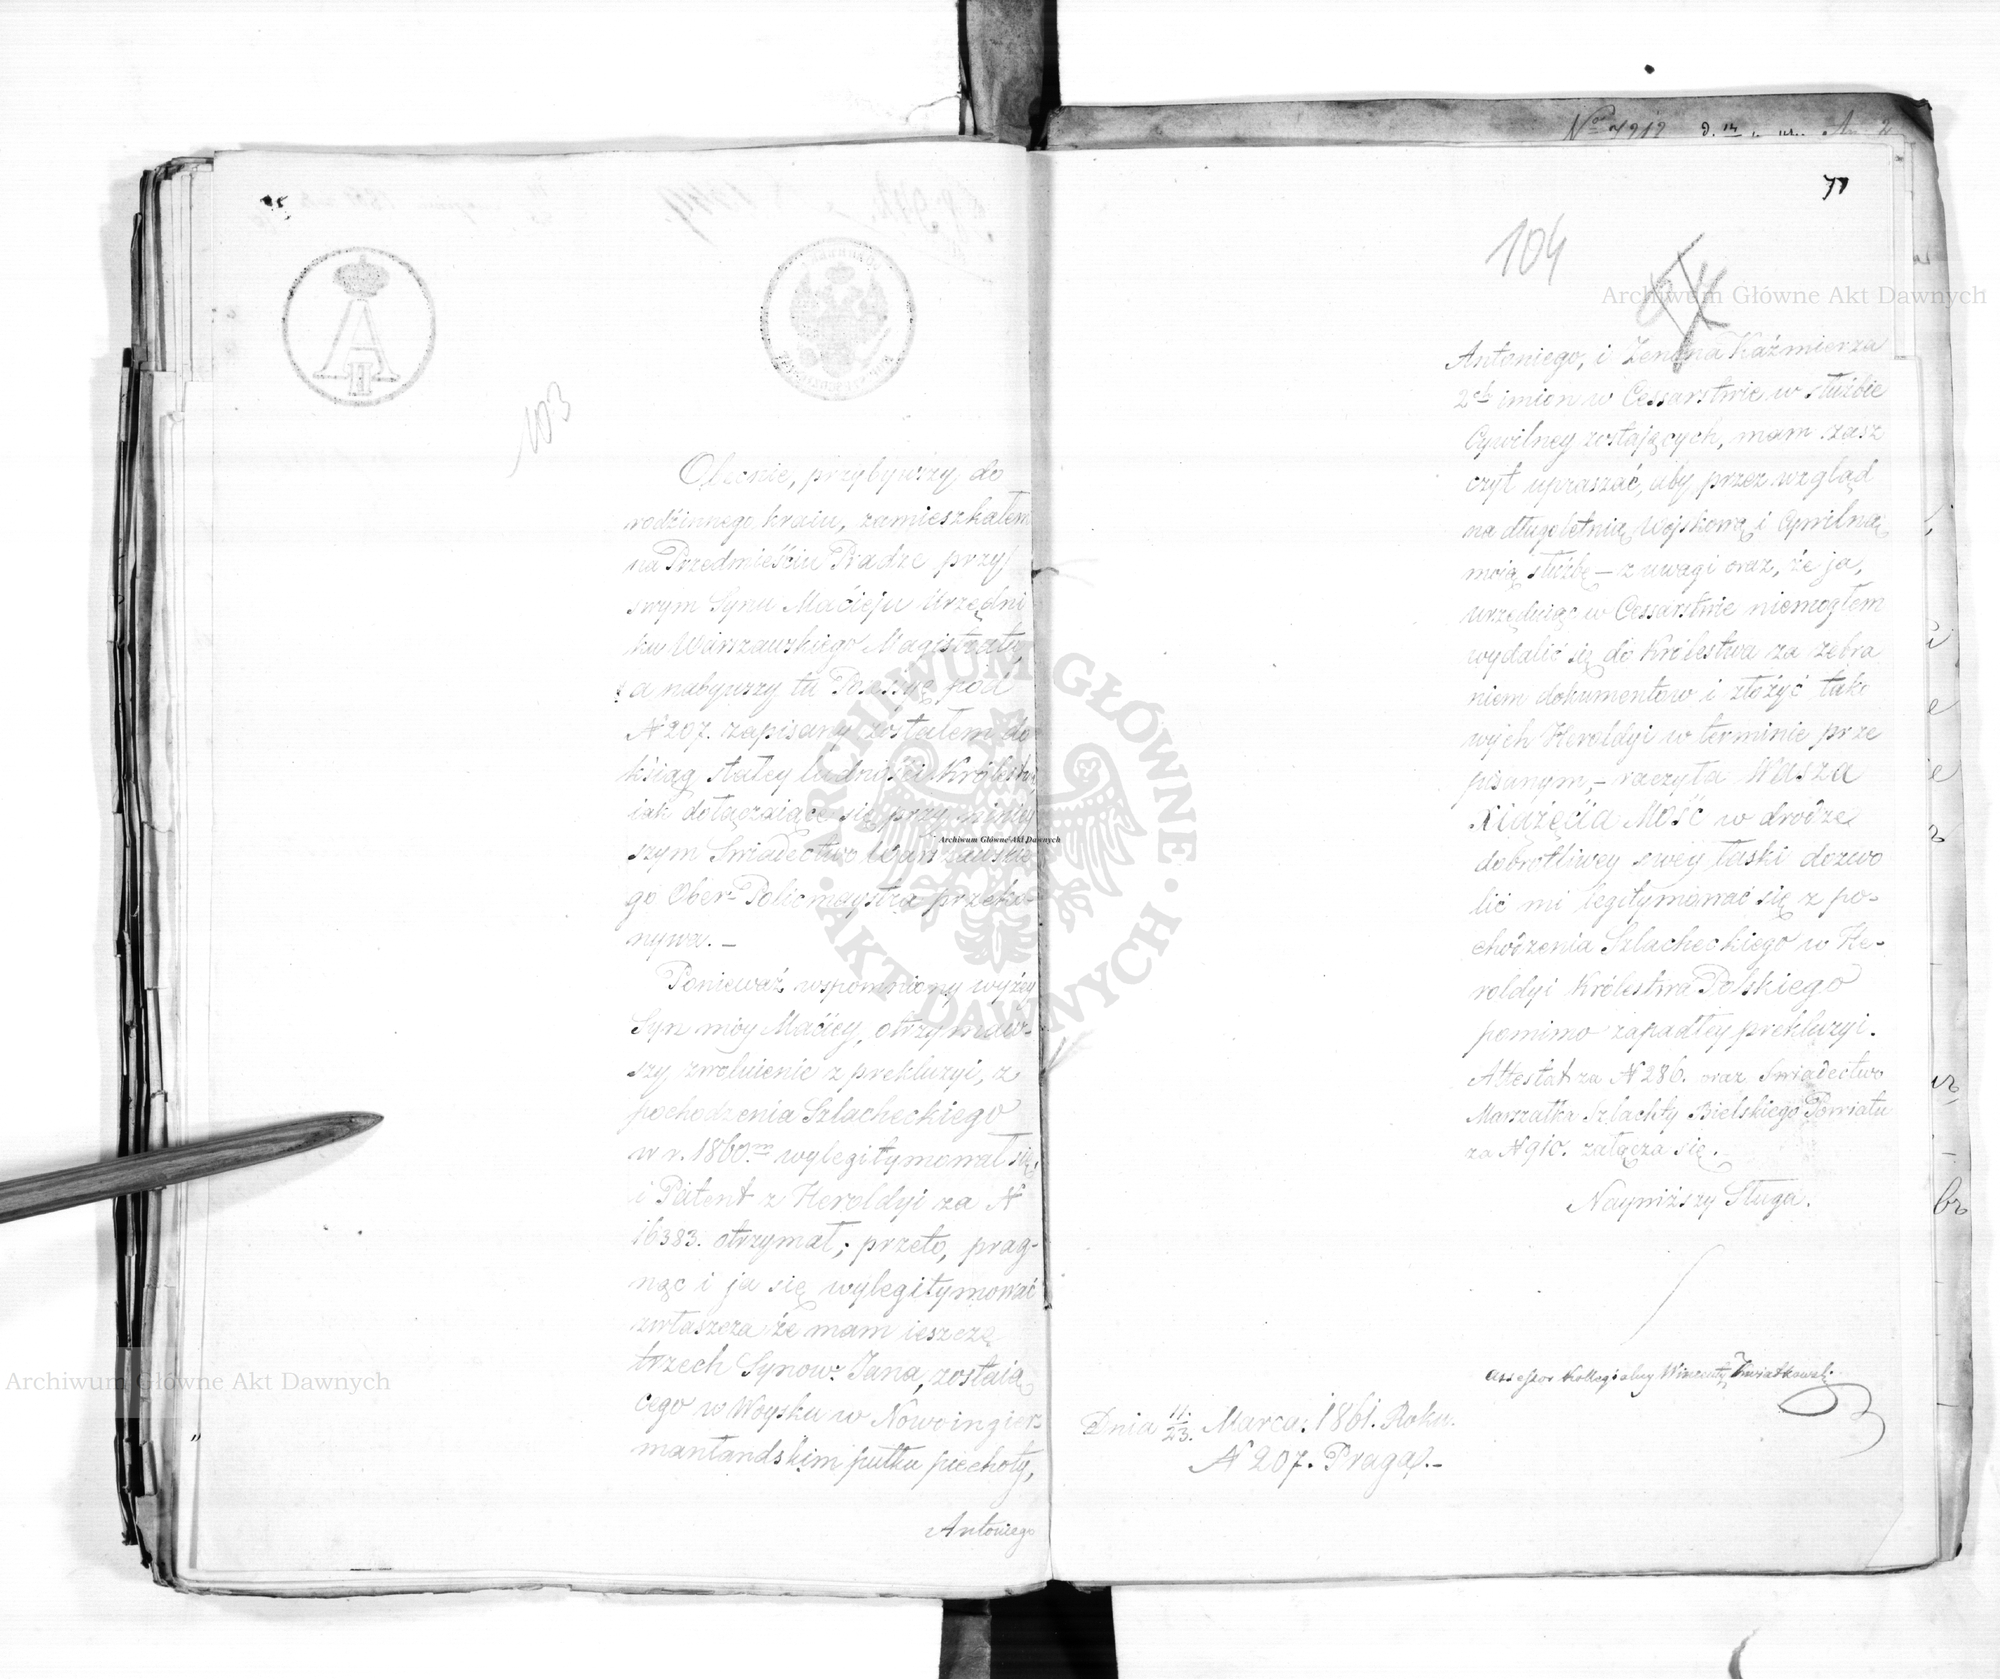 103
Obecnie, przybywszy do
rodzinnego kraiu, zamieszkałem
na Przedmieściu Pradze przy
swym Synu Macieju Urzędni
ku Warszawskiego Magistratu,
a nabywszy tu Possyę pod
N 207. zapisany zostałem do
ksiąg stałey ludności Królestwa
iak dołączaiące się przy niniey
szym Swiadectwo Warszawskie
go Ober-Policmaystra przeko-
nywa. —
Ponieważ wspomniony wyżey
Syn móy Maciey, otrzymaw-
szy zwolnienie z prekluzyi, z
pochodzenia Szlacheckiego
w r. 1860.m wylegitymował się,
i Patent z Heroldyi za N
16383. otrzymał; przeto, prag-
nąc i ja się wylegitymować
zwłaszcza że mam ieszcze
trzech Synow: Jana, zostaią
cego w Woysku w Nowoingier-
manlandskim pułku piechoty,
Antoniego
77
104
Antoniego, i Zenona Kaźmierza
2ch imion w Cessarstwie w służbie
Cywilney zostających, mam zasz
czyt upraszać, aby przez wzgląd
na długoletnią Wojskową i Cywilną
moią służbę — z uwagi oraz, że ja,
urzędując w Cessarstwie niemogłem
wydalić się do Królestwa za zebra
niem dokumentow i złożyć tako
wych Heroldyi w terminie prze
pisanym, — raczyła Wasza
Xiążęcia Mość w drodze
dobrotliwey swey łaski dozwo
lić mi legitymować się z po-
chodzenia Szlacheckiego w He-
roldyi Królestwa Polskiego
pomimo zapadłey prekluzyi.
Attestat za N 286. oraz Swiadectwo
Marszałka Szlachty Bielskiego Powiatu
za N 910. załącza się.
Nayniższy Sługa.
Assessor Kollegialny Wincenty Kwiatkowski
Dnia 11/23. Marca: 1861. Roku.
N 207. Praga. —
Archiwum Główne Akt Dawnych
Archiwum Główne Akt Dawnych
Archiwum Główne Akt Dawnych
ARCHIWUM GŁÓWNE
AKT DAWNYCH